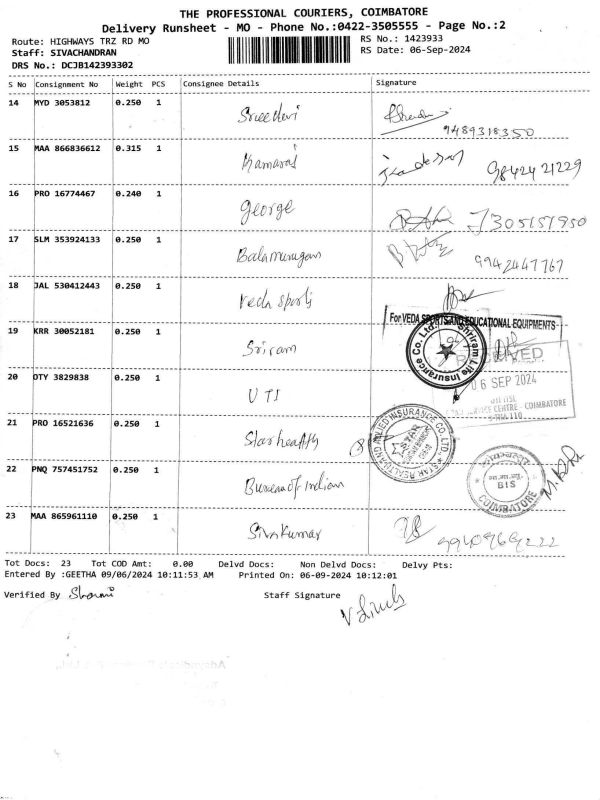 THE PROFESSIONAL COURIERS, COIMBATORE
Delivery Runsheet - MO - Phone No.:0422-3505555 - Page No.:2
Route: HIGHWAYS TRZ RD MO
RS No.: 1423933
Staff: SIVACHANDRAN
RS Date: 06-Sep-2024
DRS No.: DCJB142393302
S No Consignment No Weight PCS Consignee Details Signature
14 MYD 3053812 0.250 1 Sreedevi
9489318350
15 MAA 866836612 0.315 1 Kamaraj
9842421229
16 PRO 16774467 0.240 1 George 7305151950
17 SLM 353924133 0.250 1 Balamurugan 9942447767
18 JAL 530412443 0.250 1 Veda sports
For VEDA SPORTS AND EDUCATIONAL EQUIPMENTS
19 KRR 30052181 0.250 1 Sriram
Shriram Life Insurance Co. Ltd.
RECEIVED
20 OTY 3829838 0.250 1 UTI
06 SEP 2024
CENTRE - COIMBATORE
21 PRO 16521636 0.250 1 Starhealth
STAR HEALTH AND ALLIED INSURANCE CO. LTD.
22 PNQ 757451752 0.250 1 Bureau of Indian
BIS
COIMBATORE
23 MAA 865961110 0.250 1 Sivakumar
Tot Docs: 23 Tot COD Amt: 0.00 Delvd Docs: Non Delvd Docs: Delvy Pts:
Entered By :GEETHA 09/06/2024 10:11:53 AM Printed On: 06-09-2024 10:12:01
Verified By
Staff Signature